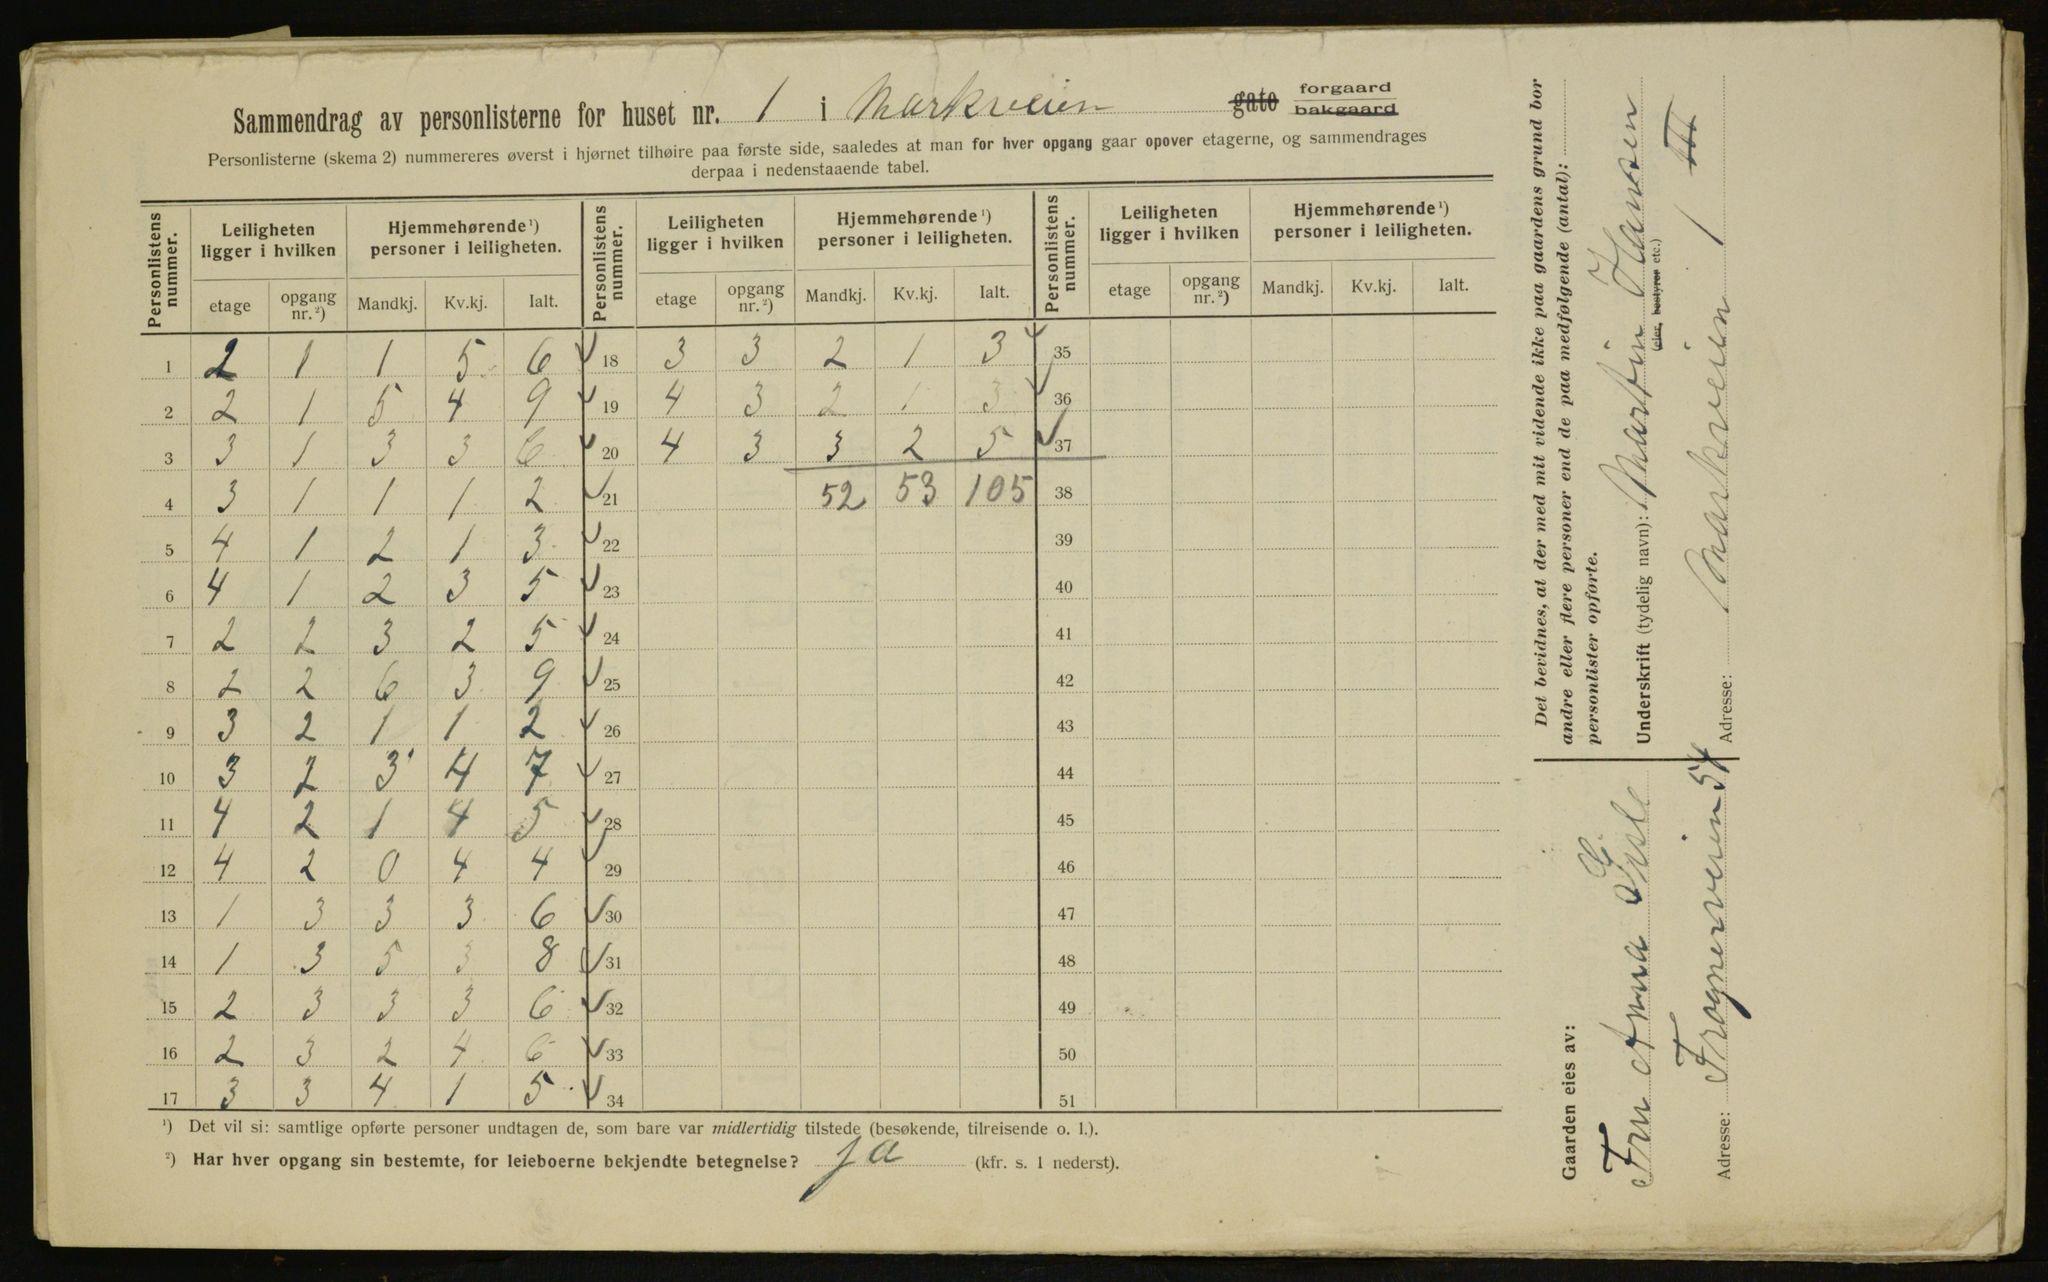 Sammendrag av personlisterne for huset nr. 1 i Markveien gate forgaard bakgaard
Personlisterne (skema 2) nummereres øverst i hjørnet tilhøire paa første side, saaledes at man for hver opgang gaar opover etagerne, og sammendrages
derpaa i nedenstaaende tabel.
Personlistens nummer. Leiligheten ligger i hvilken Hjemmehørende ¹) personer i leiligheten. Personlistens nummer. Leiligheten ligger i hvilken Hjemmehørende ¹) personer i leiligheten. Personlistens nummer. Leiligheten ligger i hvilken Hjemmehørende ¹) personer i leiligheten.
etage opgang nr. ²) Mandkj. Kv.kj. Ialt. etage opgang nr. ²) Mandkj. Kv.kj. Ialt. etage opgang nr. ²) Mandkj. Kv.kj. Ialt.
1 2 1 1 5 6 ✓ 18 3 3 2 1 3 ✓ 35
2 2 1 5 4 9 ✓ 19 4 3 2 1 3 ✓ 36
3 3 1 3 3 6 ✓ 20 4 3 3 2 5 ✓ 37
4 3 1 1 1 2 ✓ 21 52 53 105 38
5 4 1 2 1 3 ✓ 22 39
6 4 1 2 3 5 ✓ 23 40
7 2 2 3 2 5 ✓ 24 41
8 2 2 6 3 9 ✓ 25 42
9 3 2 1 1 2 ✓ 26 43
10 3 2 3 4 7 ✓ 27 44
11 4 2 1 4 5 ✓ 28 45
12 4 2 0 4 4 ✓ 29 46
13 1 3 3 3 6 ✓ 30 47
14 1 3 5 3 8 ✓ 31 48
15 2 3 3 3 6 ✓ 32 49
16 2 3 2 4 6 ✓ 33 50
17 3 3 4 1 5 ✓ 34 51
¹) Det vil si: samtlige opførte personer undtagen de, som bare var midlertidig tilstede (besøkende, tilreisende o. l.).
²) Har hver opgang sin bestemte, for leieboerne bekjendte betegnelse? ja (kfr. s. 1 nederst).
Det bevidnes, at der med mit vidende ikke paa gaardens grund bor
andre eller flere personer end de paa medfølgende (antal):
personlister opførte.
Underskrift (tydelig navn): Martin Hansen
(eier, bestyrer etc.)
Adresse: Markveien 1 III
Gaarden eies av:
Fru Anna
Adresse: Frognerveien 54